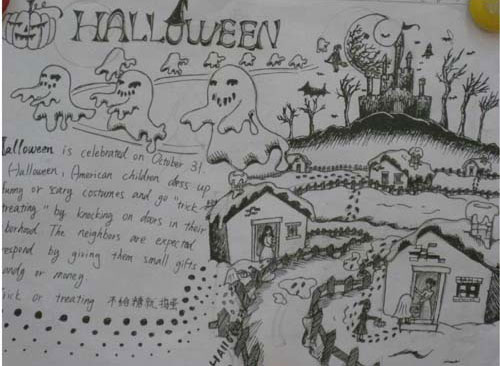 HALLOWEEN
Halloween is celebrated on October 31.
Halloween, American children dress up
funny or scary costumes and go "trick or
treating" by knocking on doors in their
borhood. The neighbors are expected
respond by giving them small gifts
candy or money
Trick or treating 不给糖就捣蛋